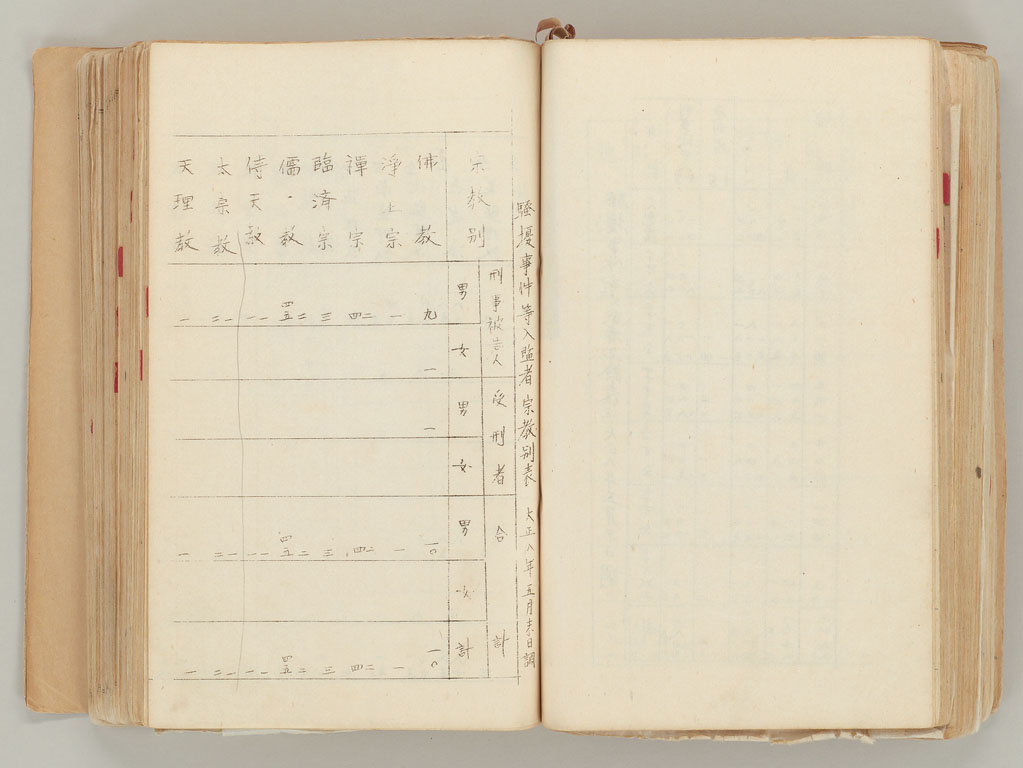 騷擾事件等入監者宗教別表 大正八年五月末日調
刑事被告人 受刑者 合計
宗教別 男 女 男 女 男 女 計
佛教 九 一 一 一〇 一〇
淨土宗 一 一 一
禪宗 四二 四二 四二
臨済宗 三 三 三
儒教 四五二 四五二 四五二
侍天教 一一 一一 一一
太宗教 二一 二一 二一
天理教 一 一 一